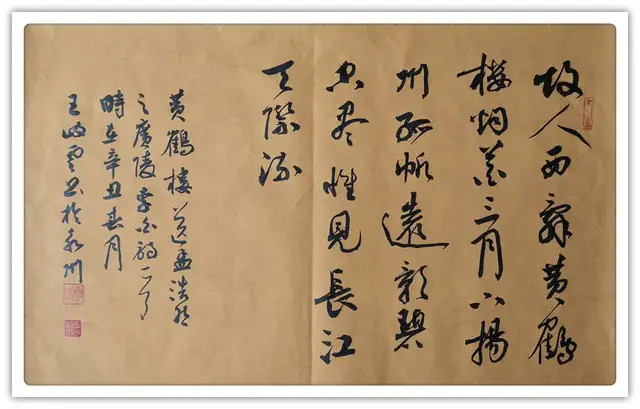 故人西辭黄鶴
楼烟花三月下揚
州孤帆遠影碧
空尽惟見長江
天際流
黄鶴楼送孟浩然
之廣陵李白詩一首
時在辛丑春月
王书於州